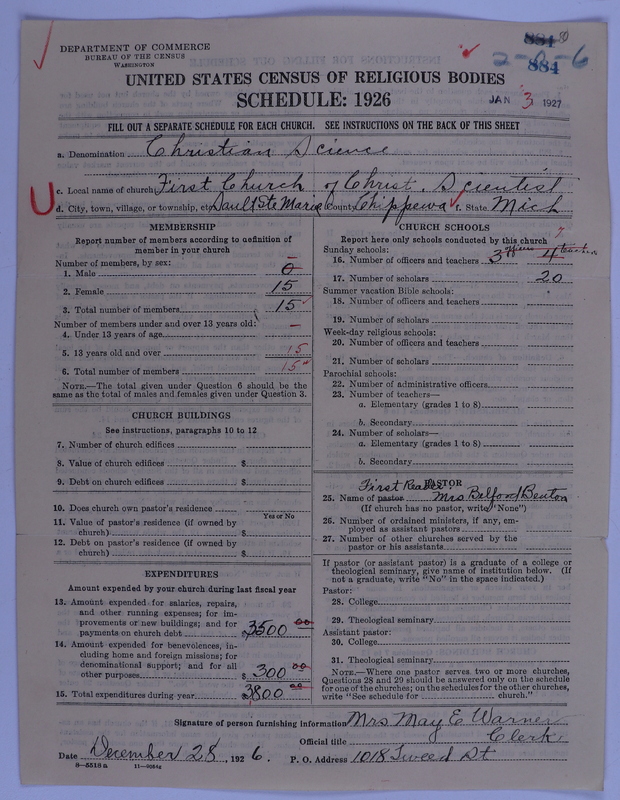 DEPARTMENT OF COMMERCE
BUREAU OF THE CENSUS
WASHINGTON
884
884
UNITED STATES CENSUS OF RELIGIOUS BODIES
SCHEDULE: 1926
JAN 3 1927
FILL OUT A SEPARATE SCHEDULE FOR EACH CHURCH. SEE INSTRUCTIONS ON THE BACK OF THIS SHEET
a. Denomination Christian Science
c. Local name of church First Church of Christ, Scientist
d. City, town, village, or township, etc Sault Ste Marie County Chippewa f. State Mich
MEMBERSHIP
Report number of members according to definition of
member in your church
Number of members, by sex:
1. Male 0
2. Female 15
3. Total number of members 15
Number of members under and over 13 years old:
4. Under 13 years of age —
5. 13 years old and over 15
6. Total number of members 15
NOTE.—The total given under Question 6 should be the
same as the total of males and females given under Question 3.
CHURCH BUILDINGS
See instructions, paragraphs 10 to 12
7. Number of church edifices
8. Value of church edifices $
9. Debt on church edifices $
10. Does church own pastor's residence
Yes or No
11. Value of pastor's residence (if owned by
church) $
12. Debt on pastor's residence (if owned by
church) $
EXPENDITURES
Amount expended by your church during last fiscal year
13. Amount expended for salaries, repairs,
and other running expenses; for im-
provements or new buildings; and for
payments on church debt $3500 00
14. Amount expended for benevolences, in-
cluding home and foreign missions; for
denominational support; and for all
other purposes $ 300 00
15. Total expenditures during year $3800 00
CHURCH SCHOOLS
Report here only schools conducted by this church
Sunday schools:
7
16. Number of officers and teachers 3 officers 4 teachers
17. Number of scholars 20
Summer vacation Bible schools:
18. Number of officers and teachers
19. Number of scholars
Week-day religious schools:
20. Number of officers and teachers
21. Number of scholars
Parochial schools:
22. Number of administrative officers
23. Number of teachers—
a. Elementary (grades 1 to 8)
b. Secondary
24. Number of scholars—
a. Elementary (grades 1 to 8)
b. Secondary
PASTOR
First Reader
25. Name of pastor Mrs Belford Benton
(If church has no pastor, write "None")
26. Number of ordained ministers, if any, em-
ployed as assistant pastors
27. Number of other churches served by the
pastor or his assistants
If pastor (or assistant pastor) is a graduate of a college or
theological seminary, give name of institution below. (If
not a graduate, write "No" in the space indicated.)
Pastor:
28. College
29. Theological seminary
Assistant pastor:
30. College
31. Theological seminary
NOTE.—Where one pastor serves two or more churches,
Questions 28 and 29 should be answered only on the schedule
for one of the churches; on the schedules for the other churches,
write "See schedule for church."
Signature of person furnishing information Mrs May E. Warner
Official title Clerk
Date December 28, 1926. P. O. Address 1018 Tweed St
8—5518 a